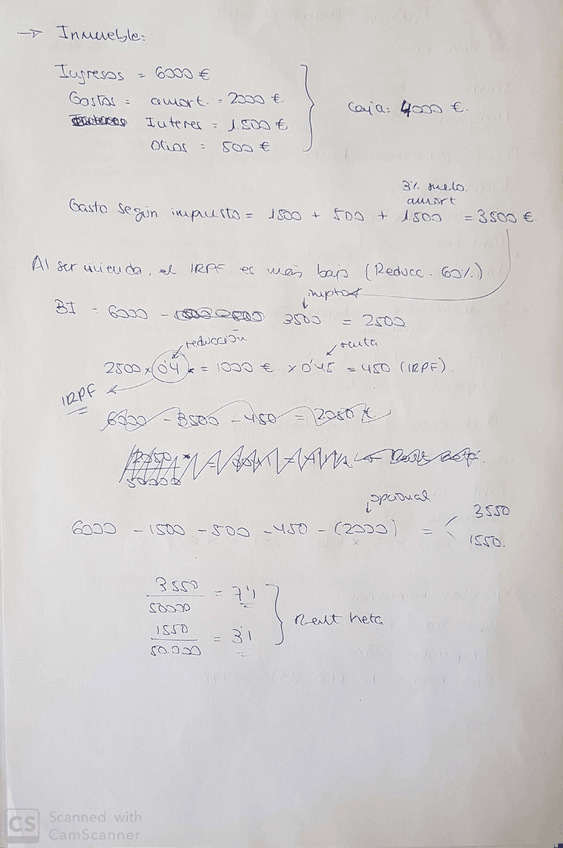 → Inmueble:
Ingresos = 6000 €
Gastos: amort. = 2000 €
Interes = 1500 €
Otros = 500 €
Caja: 4000 €.
3% suelo
amort
Gasto según impuesto = 1500 + 500 + 1500 = 3500 €
Al ser vivienda, el IRPF es más bajo (Reducc. 60%)
imptos
BI = 6000 - 3500 = 2500
reducción
renta
2500 x 0'4 = 1000 € x 0'45 = 450 (IRPF).
IRPF
6000 - 3500 - 450 = 2050 €
opcional
6000 - 1500 - 500 - 450 - (2000) = 3550
1550.
3550
50000 = 7'1
1550
50.000 = 3'1
Rent neta
CS Scanned with
CamScanner